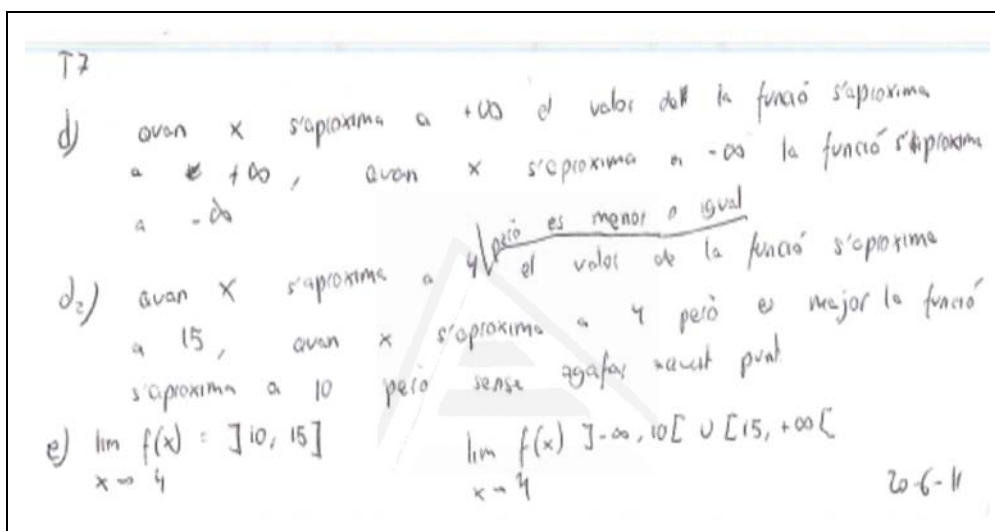 T7
d) quan x s'aproxima a +∞ el valor de la funció s'aproxima
a +∞, quan x s'aproxima a -∞ la funció s'aproxima
a -∞
però es menor o igual
d₂) quan x s'aproxima a 4 el valor de la funció s'aproxima
a 15, quan x s'aproxima a 4 però es major la funció
s'aproxima a 10 però sense agafar aquest punt
e) lim f(x) = ]10, 15] lim f(x) ]-∞, 10[ ∪ [15, +∞[
x→4 x→4
20-6-11